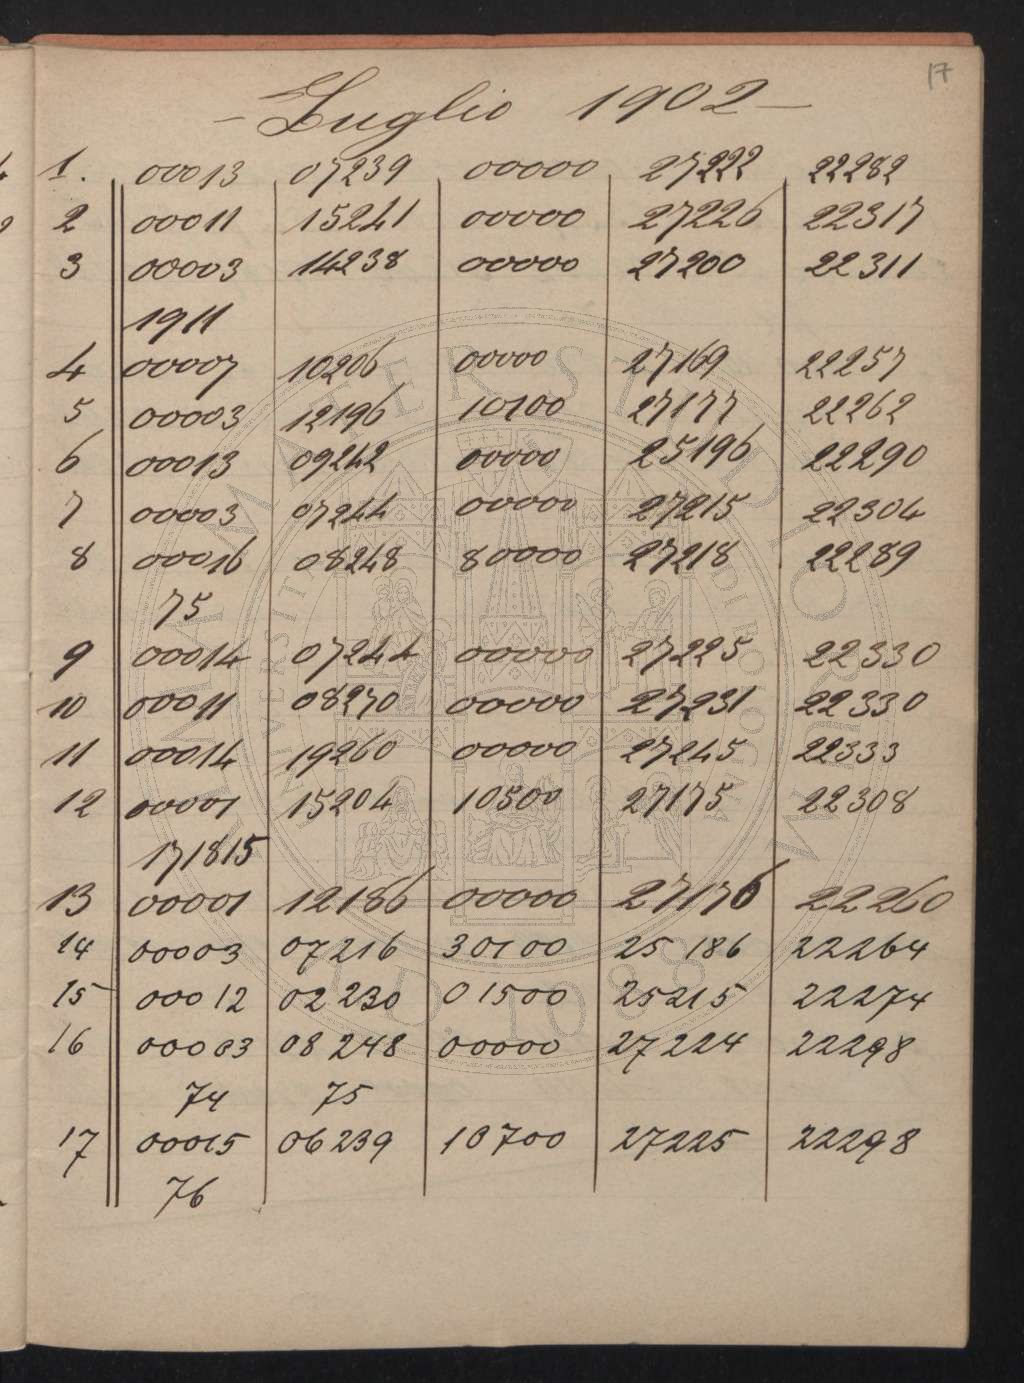 17
- Luglio 1902 -
1. 00013 07239 00000 27222 22282
2 00011 15241 00000 27226 22317
3 00003 14238 00000 27200 22311
1911
4 00007 10206 00000 27169 22257
5 00003 12196 10100 27177 22262
6 00013 09242 00000 25196 22290
7 00003 07244 00000 27215 22304
8 00016 08248 80000 27218 22289
75
9 00014 07244 00000 27225 22330
10 00011 08270 00000 27231 22330
11 00014 19260 00000 27245 22333
12 00001 15204 10500 27175 22308
171815
13 00001 12186 00000 27176 22260
14 00003 07216 30100 25186 22264
15 00012 02230 01500 25215 22274
16 00003 08248 00000 27224 22298
74 75
17 00015 06239 10700 27225 22298
76
ALMA MATER STUDIORUM
A.D. 1088